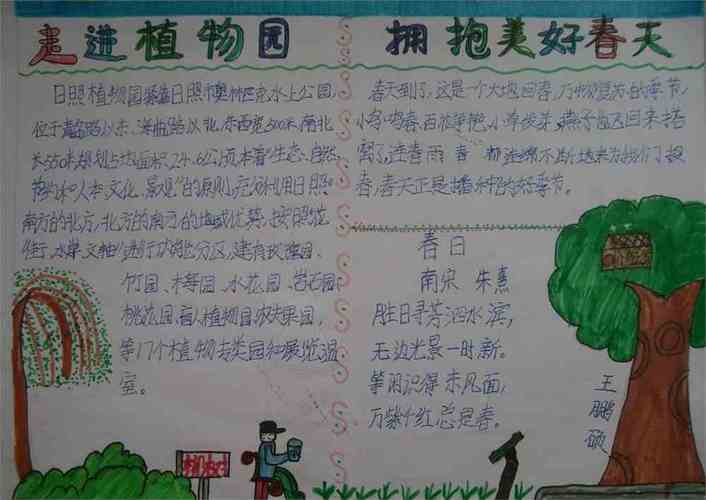 走进植物园
日照植物园紧靠日照市奥林匹克水上公园,
位于青岛路以东、深圳路以北,东西宽500米,南北
长550米,规划占地面积24.6公顷,本着"生态、自然、
节约和人本、文化、景观"的原则,充分利用日照
南方的北方,北方的南方的地域优势,按照花
街、水岸、文轴进行功能分区,建有玫瑰园、
竹园、梅园、水花园、岩石园
桃花园、盲人植物园、农夫果园,
等17个植物专类园和展览温
室。
拥抱美好春天
春天到了,这是一个大地回春,万物复苏的季节,
小鸟鸣春,百花争艳,小草发芽,燕子也飞回来搭
窝了,连春雨
春,春天正是播种的好季节。
春日
南宋 朱熹
胜日寻芳泗水滨,
无边光景一时新。
等闲识得东风面,
万紫千红总是春。
王鹏硕